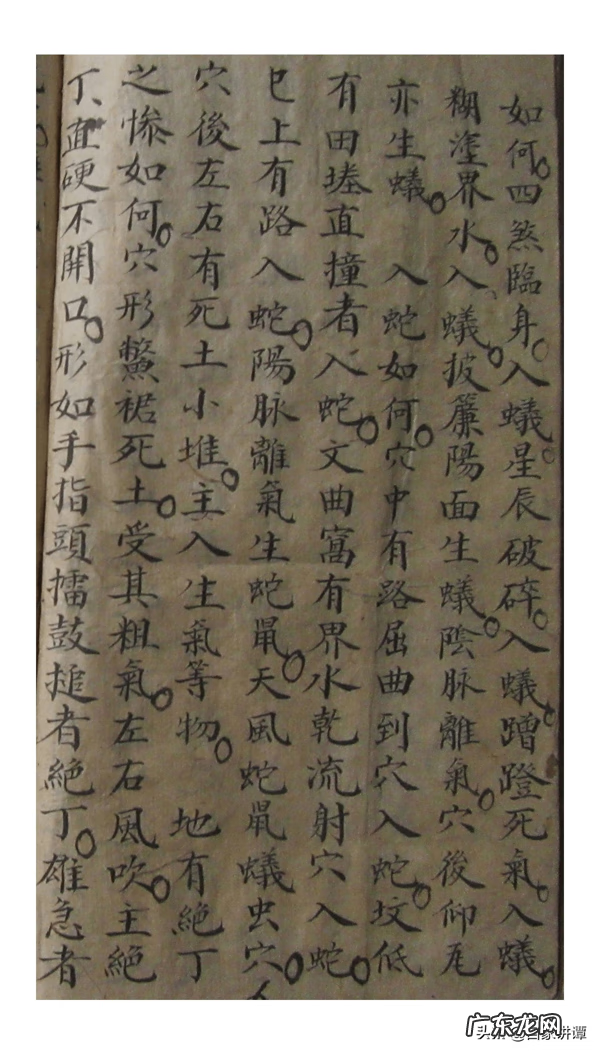 如何。四煞臨身。入蟻。星辰破碎。入蟻。蹭蹬死氣。入蟻。
糊塗界水。入蟻。披簾陽面生蟻。陰脉離氣。穴後仰瓦
亦生蟻。 入蛇如何。穴中有路屈曲到穴入蛇。坟低
有田塍直撞者入蛇。文曲窩有界水乾流射穴入蛇。
已上有路入蛇。陽脉離氣生蛇鼠。天風蛇鼠蟻虫穴。
穴後左右有死土小堆。主入生氣等物。 地有絶丁
之慘如何。穴形鱉裾死土。受其粗氣。左右風吹。主絶
丁、直硬不開口。形如手指頭擂鼓搥者絶丁。雄急者
广东龙网